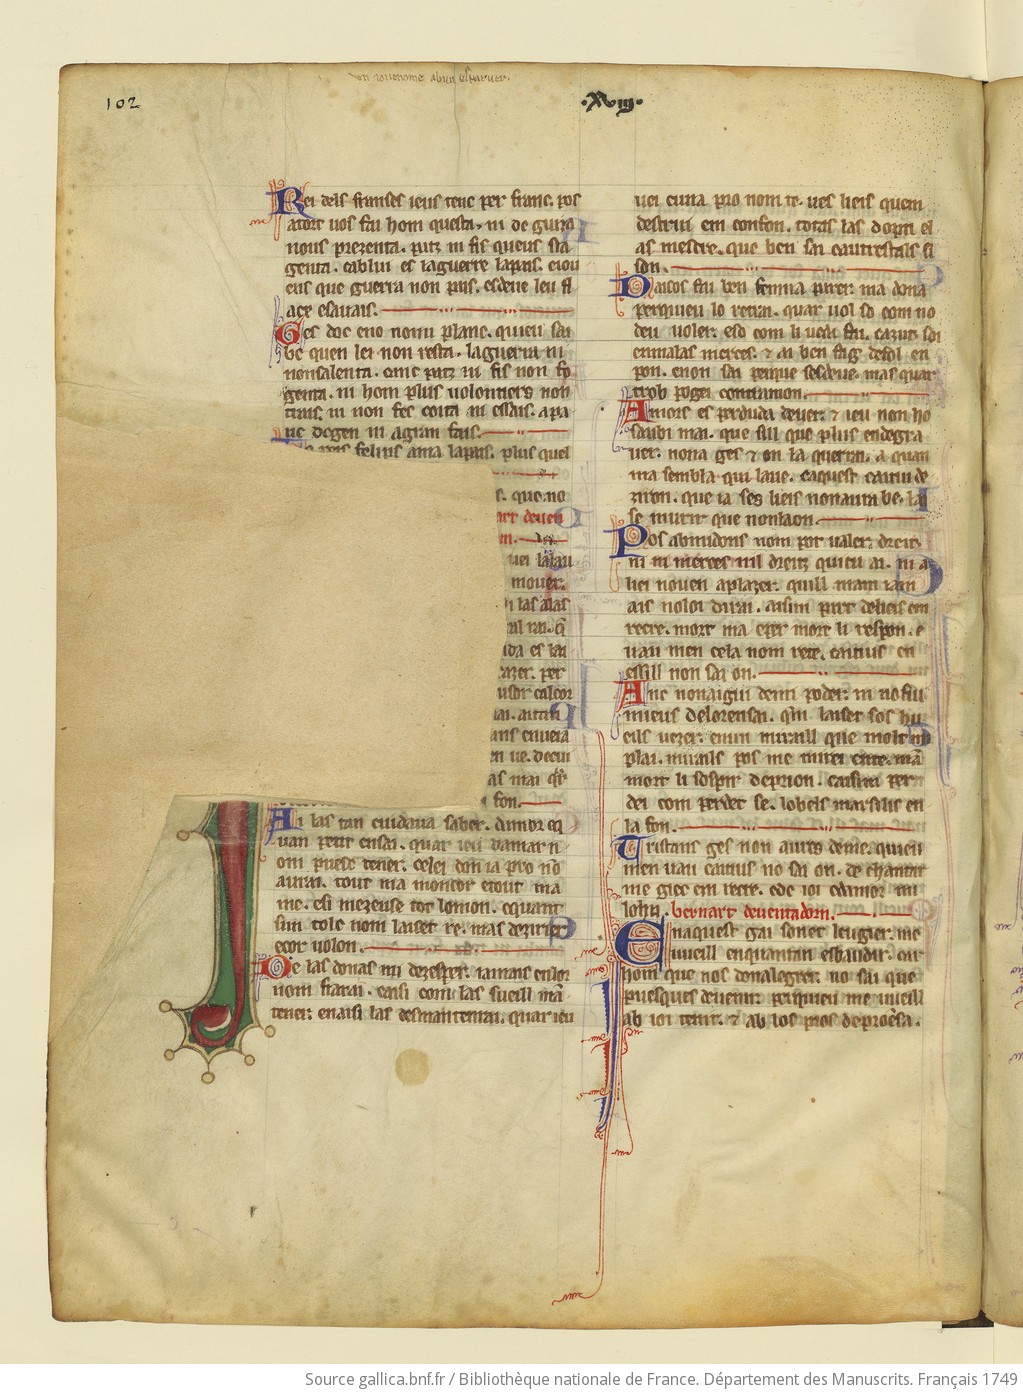 102
·XViij·
Rei dels franses ieus tenc per franc. pos
atort uos fai hom questa. ni de guiza
nous prezenta. patz ni fis queus sia
genta. cablui es laguerre lapais. eiou
eus que guerra non puis. esdeue leu fl
acx esauais.
Ges doc eno nomi planc. quieu sai
be quen lei non resta. laguerra ni
nonsalenta. anc patz ni fis non fo
genta. ni hom plus uolontiers non
trais. ni non fes coita ni essais. apa
uc dogen ni agran fais.
felips ama lapais. plus quel
s. que no
art deuen
m.
uei lalau
mouer.
las alas
al rai. q̃
ida es lai
azer. per
usar caleor
lai. autrui
ans enueia
en ue. decui
as mai
fon.
Ai las tan cuidaua saber. damor eq
uan petit ensai. quar ieu damar n
om puesc tener. celei don ia pro no
aurai. tout ma moncor etout ma
me. esi mezeuse tot lomon. equant
sim tolc nom laiset re. mas dezirier
ecor uolon.
De las donas mi dezesper. iamais enlor
nom fiarai. enaisi com las sueill mã
tener. enaisi las desmantenrai. quar ieu
uei cuna pro nom te. ues lieis quem
destrui em confon. totas las dopti el
as mescre. que ben sai cautrestals si
son.
Daisos fai ben femna parer. ma dona
perquieu lo retrai. quar uol so com no
deu uoler. eso com li ueda fai. cazutz soi
enmalas merces. ⁊ ai ben fag defol en
pon. enon sai perque sesdeue. mas quar
trob pogei contramon.
Amors es perduda deuer. ⁊ ieu non ho
saubi mai. que sill que plus endegra
uer. nona ges ⁊ on la querrai. a quan
ma sembla qui laue. caquest caitiu de
ziron. que ia ses lieis nonaura be. lai
se murir que nonlaon.
Pos abmidons nom pot ualer. dreitz
ni merces nil dreitz quieu ai. ni a
liei nouen aplazer. quill mam iam
ais noloi dirai. aisim part delieis em
recre. mort ma eper mort li respon. e
uau men cela nom rete. caitius en
essill non sai on.
Anc nonaigui demi poder. ni no fui
mieus delorensai. quem laiset sos hu
eils uezer. enun miraill que molt mi
plai. mirails pos me mirei ente. mã
mort li sospir deprion. caisim per
dei com perdet se. lobels marsilis en
la fon.
Tristans ges non aures deme. quieu
men uau caitius no sai on. de chantar
me gicc em recre. ede ioi edamor mi
bernart deuentadorn.
Enaquest gai sonet leugier. me
uueill enquantan esbaudir. car
hom que nos donalegrer. no sai que
puesques deuenir. perquieu me uueill
ab ioi tenir. ⁊ ab los pros deproesa.
Source gallica.bnf.fr / Bibliothèque nationale de France. Département des Manuscrits. Français 1749